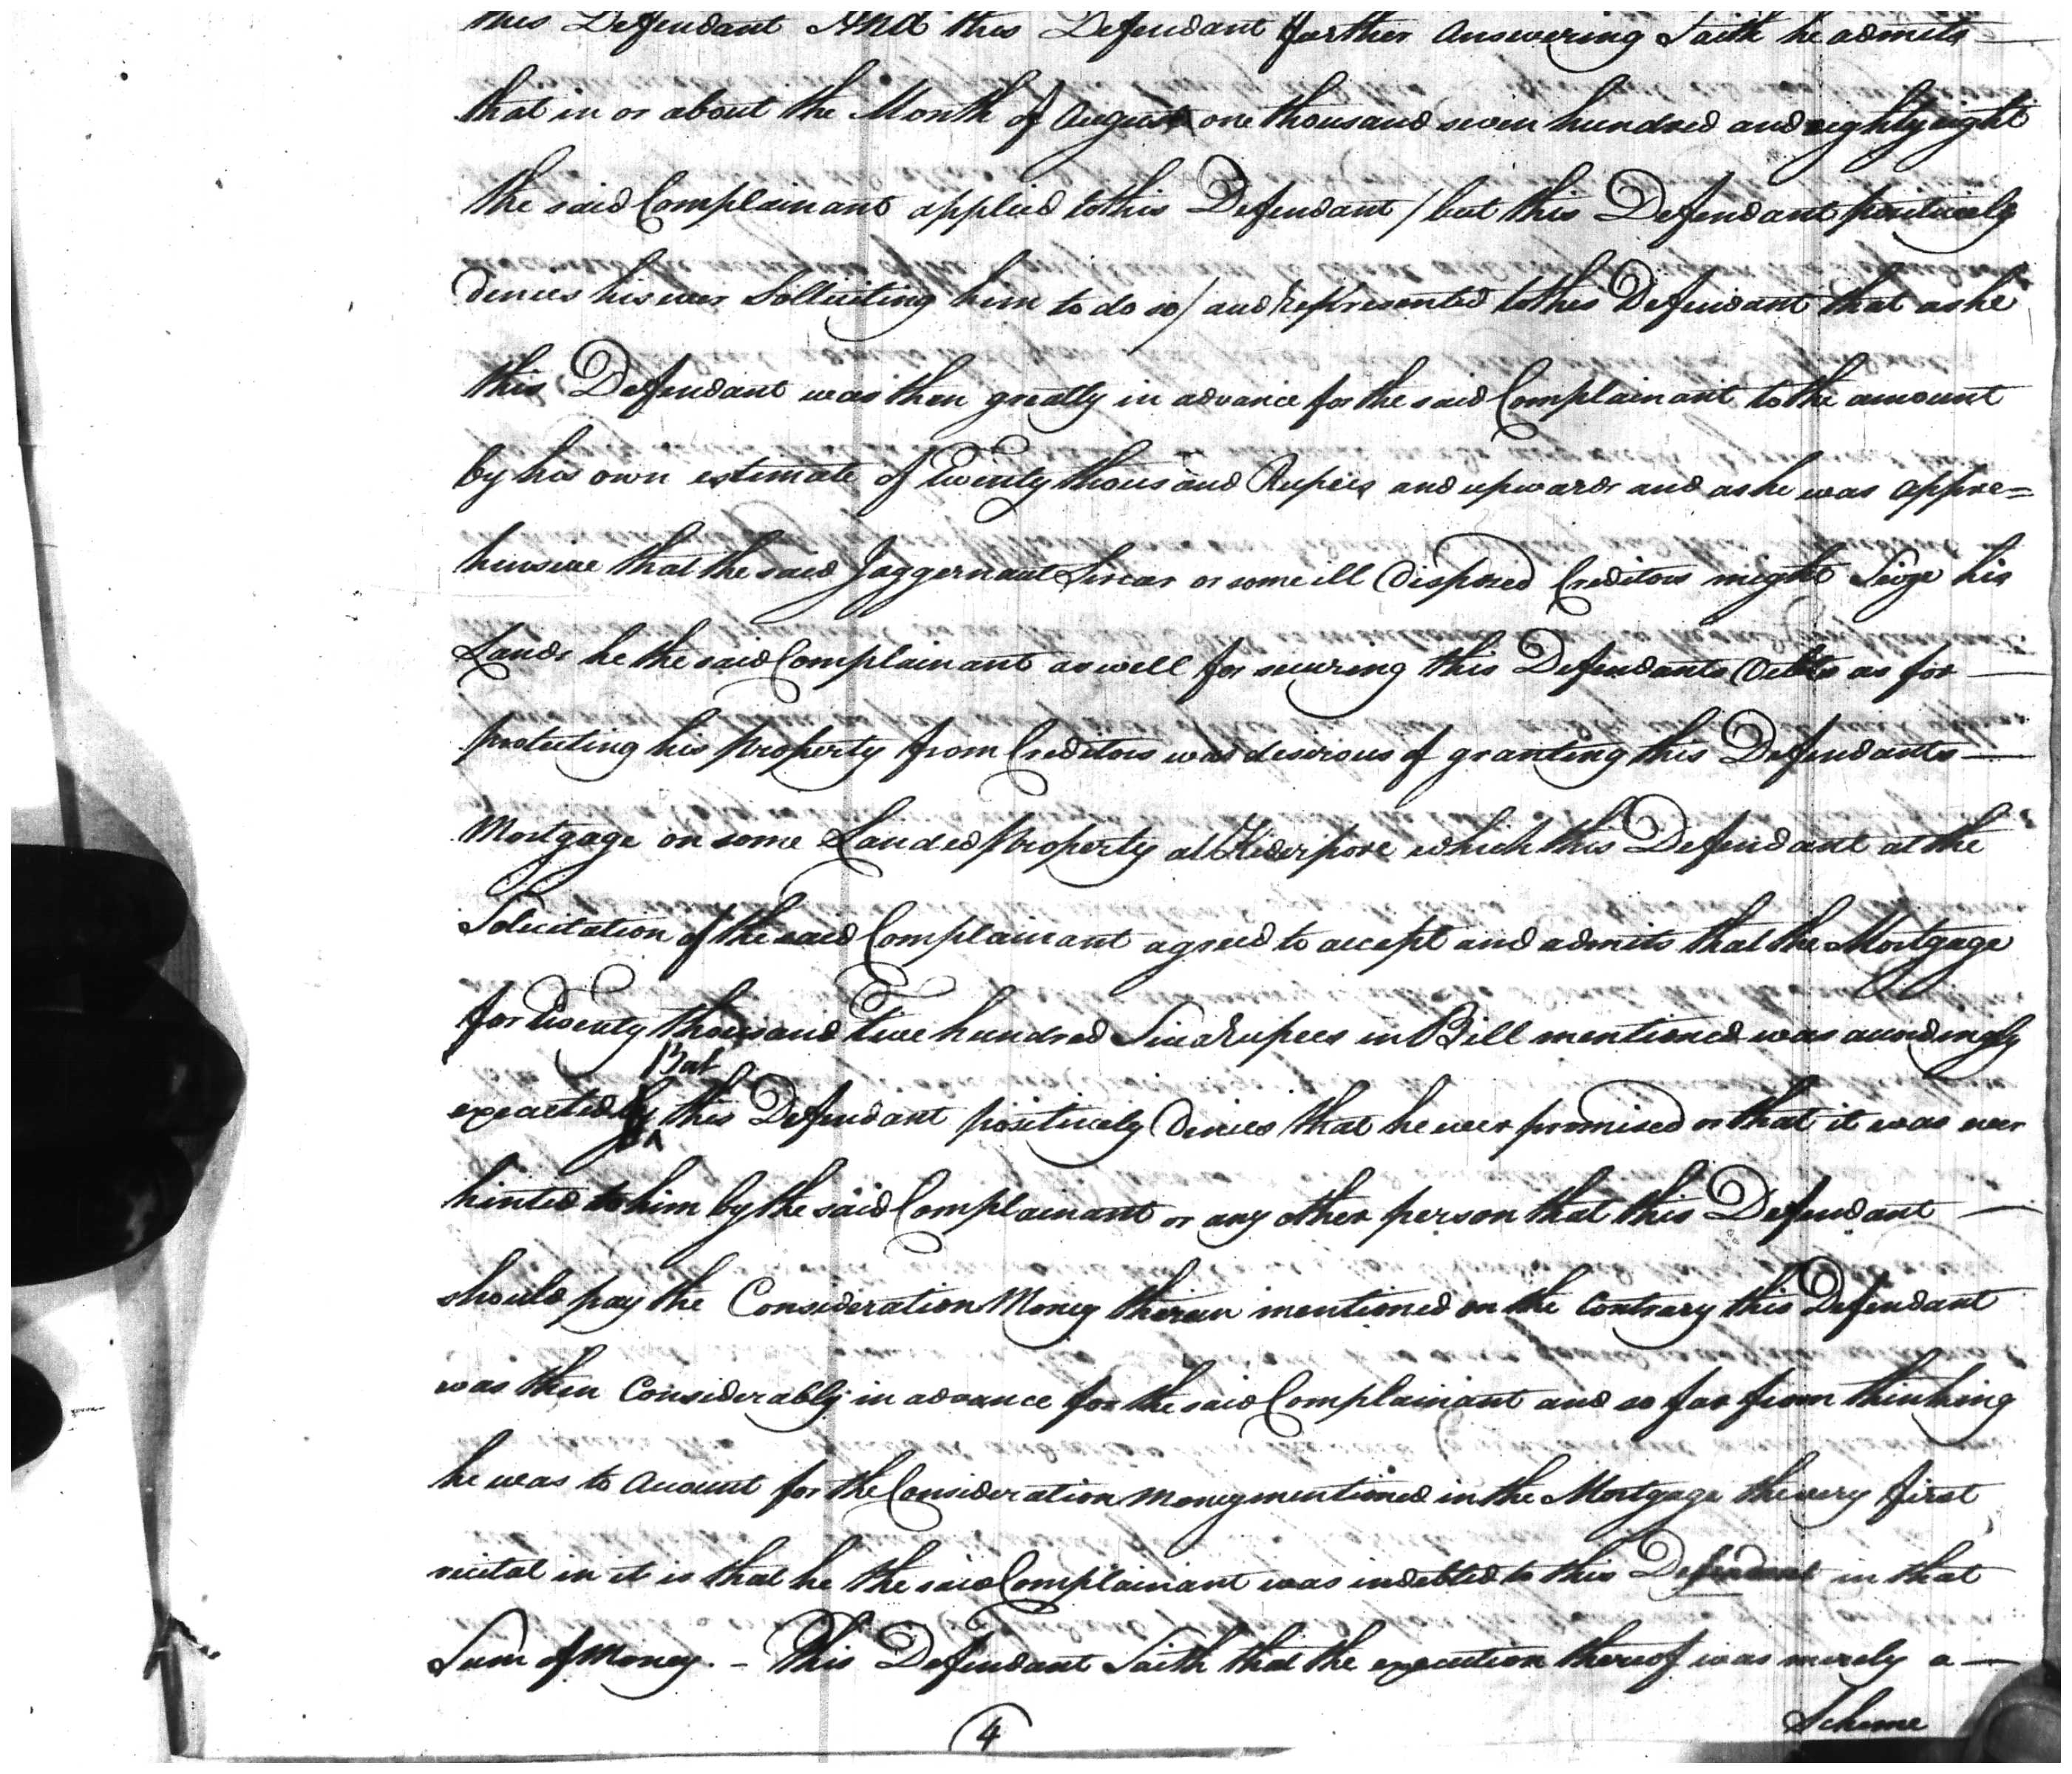 this Defendant And this Defendant further Answering Saith he admits
that in or about the Month of August one thousand seven hundred and eighty eight
the said Complainant applied to this Defendant / but this Defendant positively
denies his ever Solliciting him to do so / and represented to this Defendant that as he
this Defendant was then greatly in advance for the said Complainant to the amount
by his own estimate of Twenty thousand Rupees and upwards and as he was appre=
hensive that the said Jaggernaut Sircar or some ill disposed Creditors might Seize his
Lands he the said Complainant as well for securing this Defendants Debts as for
protecting his property from Creditors was desirous of granting this Defendants
Mortgage on some Landed property at Kiderpore which this Defendant at the
Solicitation of the said Complainant agreed to accept and admits that the Mortgage
for Twenty thousand Five hundred Sicca rupees in Bill mentioned was accordingly
But
executed this Defendant positively Denies that he ever promised or that it was ever
hinted to him by the said Complainant or any other person that this Defendant
should pay the Consideration Money therein mentioned on the contrary this Defendant
was then Considerably in advance for the said Complainant and so far from thinking
he was to Account for the Consideration money mentioned in the Mortgage the very first
recital in it is that he the said Complainant was indebted to this Defendant in that
Sum of Money. - This Defendant Saith that the execution thereof was merely a
Scheme
4